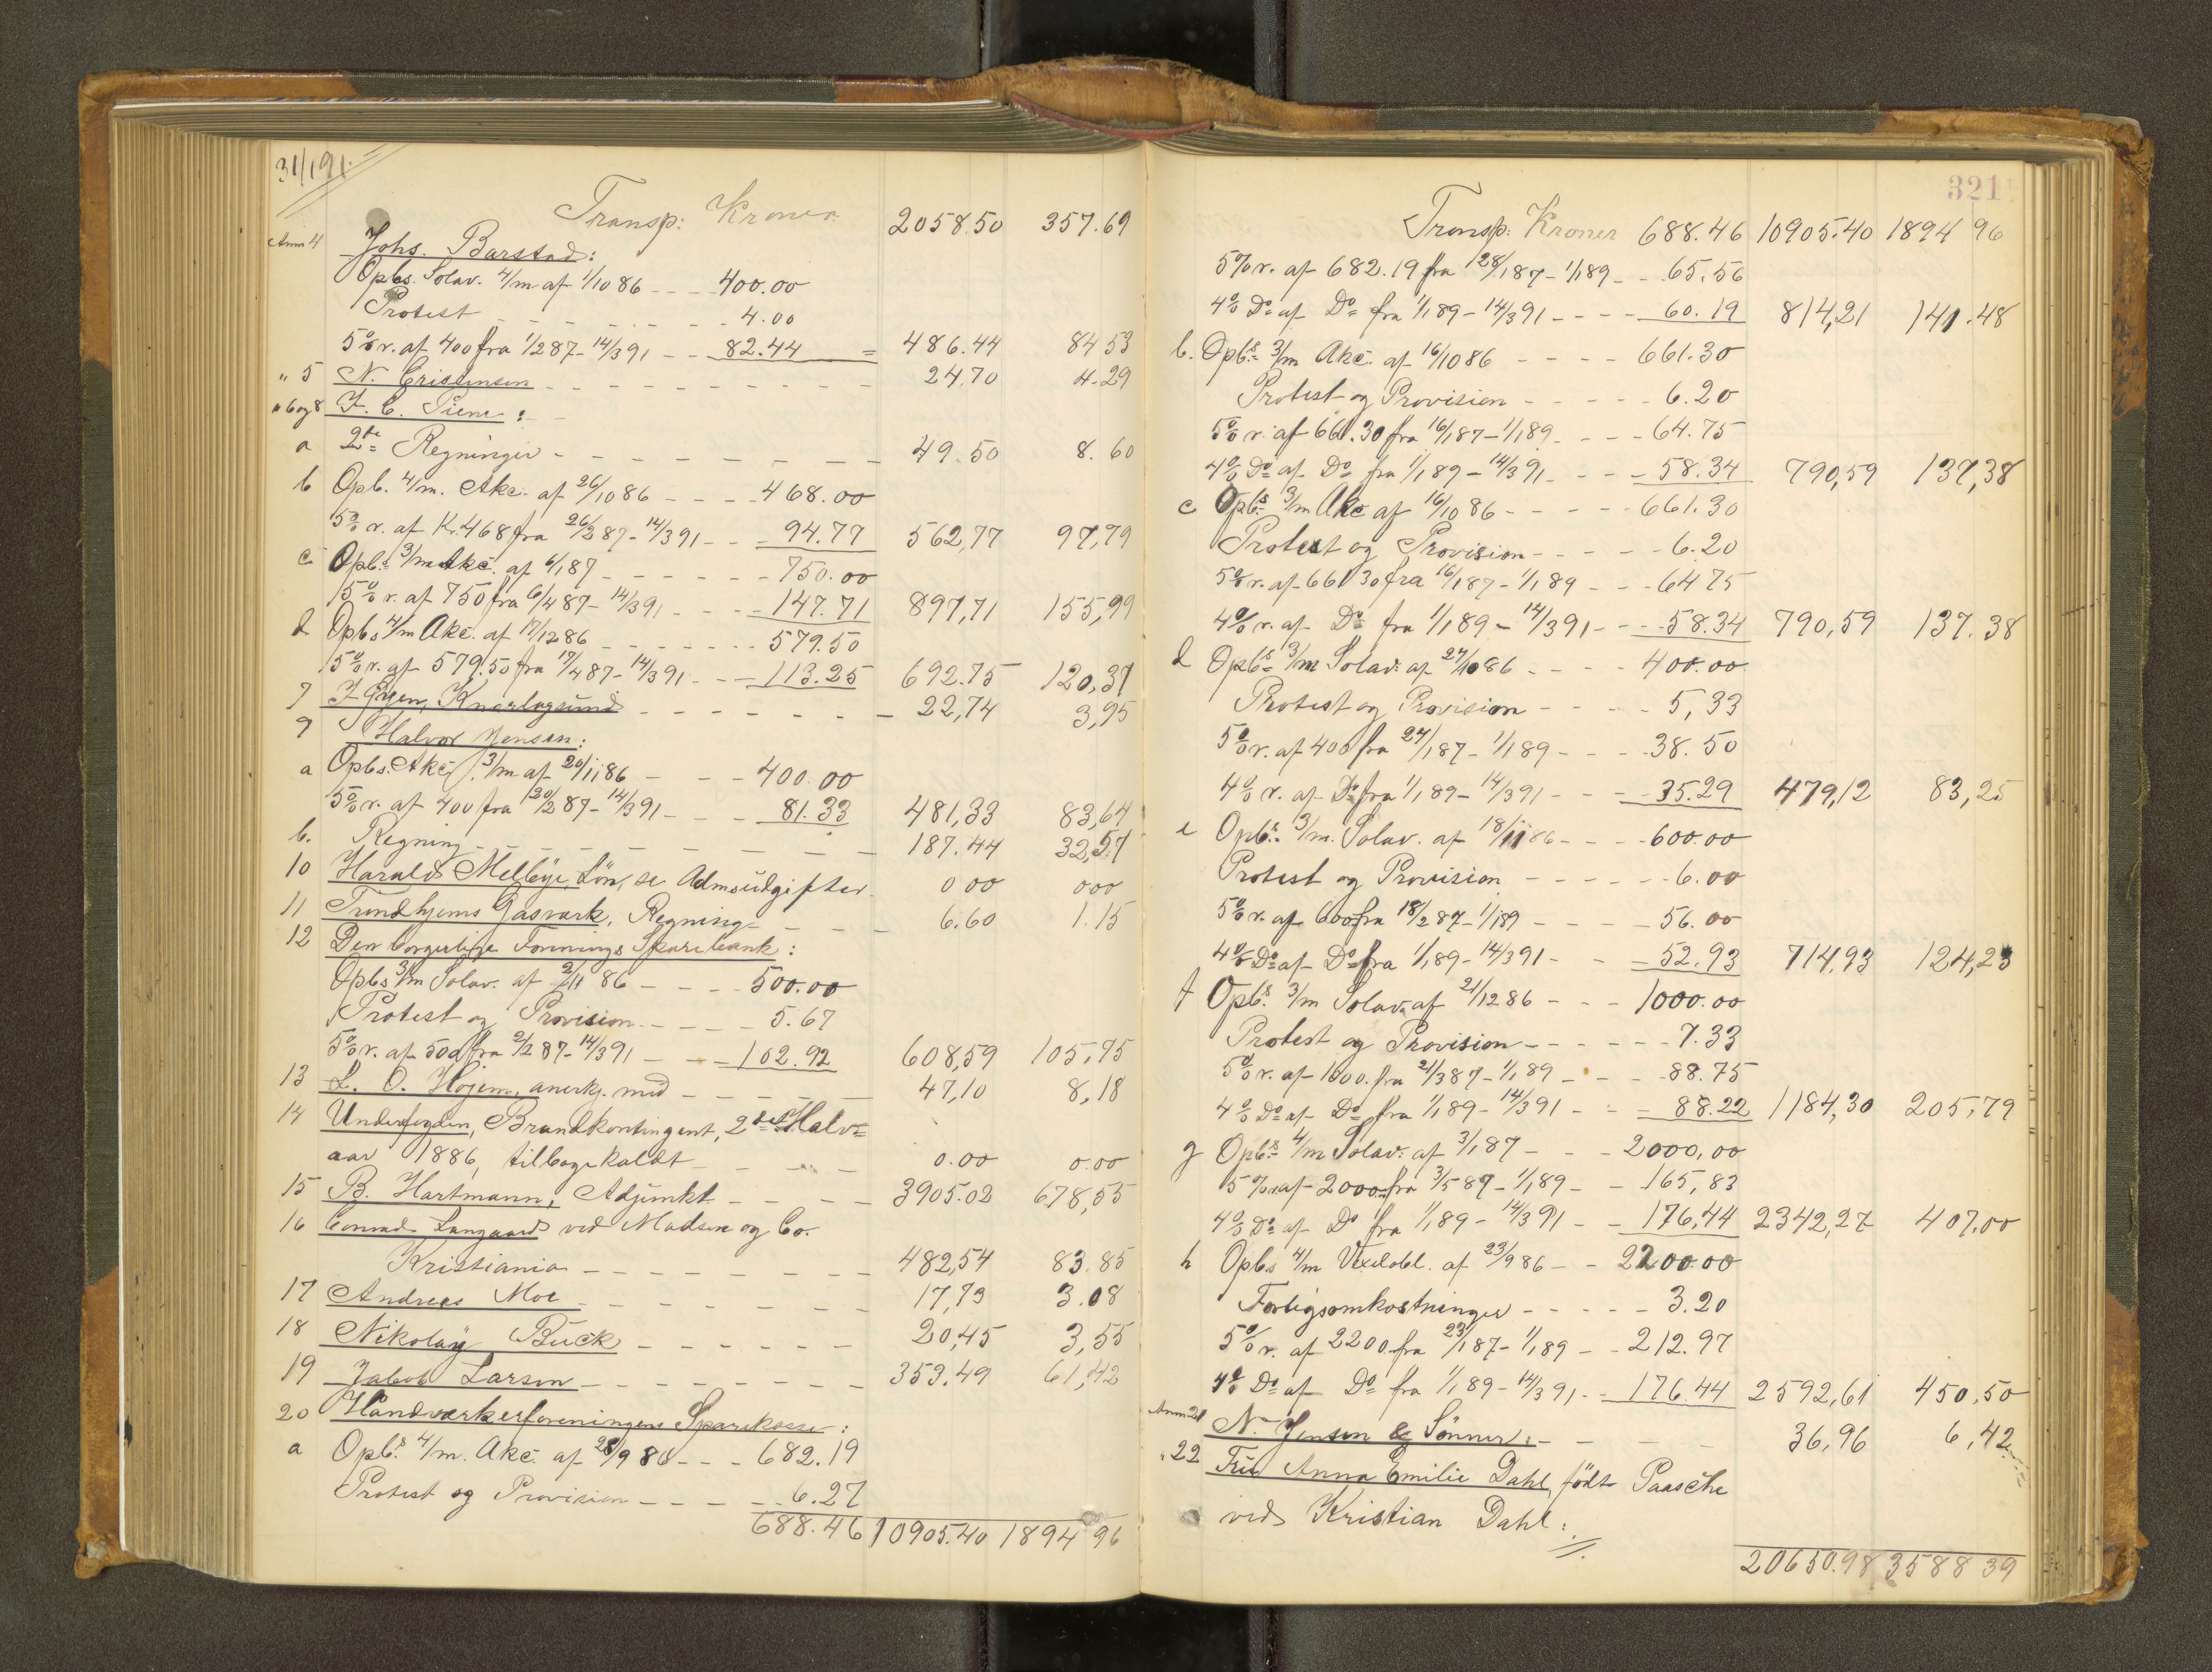 31/1 91.
Transp: Kroner 2058.50 357.69
Anm 4 Johs. Barstad:
Opbs. Solav. 4/m af 1/10 86 - - - 400.00
Protest - - - - - - 4.00
5% r. af 400 fra 1/2 87 - 14/3 91 - - 82.44 = 486.44 84 53
" 5 N. Cristensen - - - - - - - - 24.70 4.29
" 6 og 8 I. C. Piene:
a 2de Regninger - - - - - - - - 49.50 8.60
b Opb. 4/m. Akc. af 26/10 86 - - - - 468.00
5% r. af Kr. 468 fra 26/2 87 - 14/3 91 - - - 94.77 562,77 97,79
c Opbs. 3/m Akc. af 6/1 87 - - - - - - 750.00
5% r. af 750 fra 6/4 87 - 14/3 91 - - - - 147.71 897,71 155,99
d Opbs 4/m Akc. af 17/12 86 - - - - - - 579.50
5% r. af 579.50 fra 17/4 87 - 14/3 91 - - - 113.25 692.75 120,37
7 Knarlagsund - - - - - - - 22,74 3,95
9 Halvor Jensen:
a Opbs. Akc. 3/m af 20/11 86 - - - 400.00
5% r. af 400 fra 20/2 87 - 14/3 91 - - - 81.33 481,33 83,64
b. Regning - - - - - - - - 187.44 32,57
10 Harald Melbÿe, Løn, se Admsudgifter. 0 00 0 00
11 Trondhjems Gasværk, Regning - - - 6.60 1.15
12 Den borgerlige Forenings Sparebank:
Opbs 3/m Solav. af 2/11 86 - - - - 500.00
Protest og Provision - - - - 5.67
5% r. af 500 fra 2/2 87 - 14/3 91 - - - 102.92 608,59 105,75
13 L. O. Hojem, anerkj. med - - - - - 47,10 8,18
14 Underfogden, Brandkontingent, 2det Halv=
aar 1886, tilbagekaldt - - - - 0.00 0.00
15 B. Hartmann, Adjunkt - - - - 3905.02 678,55
16 Conrad Langaard ved Madsen og Co.
Kristiania - - - - - - - 482,54 83.85
17 Andreas Moe - - - - - - - 17,73 3.08
18 Nikolaÿ Buck - - - - - - 20,45 3,55
19 Jakob Larsen - - - - - - - - 353.49 61,42
20 Handværkerforeningens Sparekasse:
a Opbs. 4/m. Akc. af 28/9 86 - - - 682.19
Protest og Provision - - - - - 6.27
688.46 10905.40 1894 96
321
Transp: Kroner 688.46 10905.40 1894 96
5% r. af 682.19 fra 28/1 87 - 1/1 89 - - 65.56
4% Do af Do fra 1/1 89 - 14/3 91 - - - - 60.19 814,21 141.48
b. Opbs. 3/m Akc. af 16/10 86 - - - - 661.30
Protest og Provision - - - - - 6.20
5% r. af 661.30 fra 16/1 87 - 1/1 89 - - - 64.75
4% Do af Do fra 1/1 89 - 14/3 91 - - - 58.34 790,59 137,38
c Opbs. 3/m Akc af 16/10 86 - - - - - 661.30
Protest og Provision - - - - - 6.20
5% r. af 661 30 fra 16/1 87 - 1/1 89 - - - 64 75
4% r. af Do fra 1/1 89 - 14/3 91 - - - 58.34 790,59 137.38
d Opbs. 3/m Solav. af 24/10 86 - - - - 400.00
Protest og Provision - - - - 5,33
5% r. af 400 fra 24/1 87 - 1/1 89 - - - 38.50
4% r. af Do fra 1/1 89 - 14/3 91 - - - 35.29 479,12 83,25
e Opbs. 3/m. Solav. af 18/11 86 - - - - 600.00
Protest og Provision - - - - - 6.00
5% r. af 600 fra 18/2 87 - 1/1 89 - - - - 56.00
4% Do af Do fra 1/1 89 - 14/3 91 - - - 52.93 714,93 124,23
f Opbs. 3/m Solav. af 21/12 86 - - - 1000.00
Protest og Provision - - - - - - 7.33
5% r. af 1000. fra 21/3 87 - 1/1 89 - - - 88.75
4% Do af Do fra 1/1 89 - 14/3 91 - - - 88.22 1184,30 205,79
g Opbs. 4/m Solav. af 3/1 87 - - - 2000,00
5% r. af 2000 fra 3/5 87 - 1/1 89 - - 165,83
4% Do af Do fra 1/1 89 - 14/3 91 - - 176,44 2342,27 407,00
h Opbs 4/m Vexelobl. af 23/9 86 - - 2200.00
Forligsomkostninger - - - - - 3.20
5% r. af 2200 fra 23/1 87 - 1/1 89 - - 212.97
4% Do af Do fra 1/1 89 - 14/3 91 - - 176.44 2592,61 450,50
Anm 21 N. Jensen & Sønner: - - - - 36,96 6,42
" 22 Fru Anna Emilie Dahl, født Paasche
ved Kristian Dahl:
20650.98 3588 39